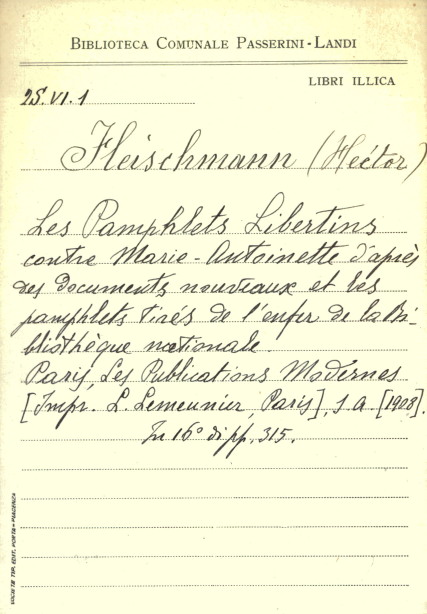 BIBLIOTECA COMUNALE PASSERINI-LANDI
LIBRI ILLICA
2S.VI.1
Fleischmann (Héctor)
Les Pamphlets Libertins
contre Marie-Antoinette d'après
des documents nouveaux et les
pamphlets tirés de l'enfer de la Bi-
bliothèque nationale.
Paris, Les Publications Modérnes
[Impr. L. Lemeunier, Paris], s a [1908].
In 16° di pp. 315.
SOCIETÀ TIP. EDIT. PORTA-PIACENZA